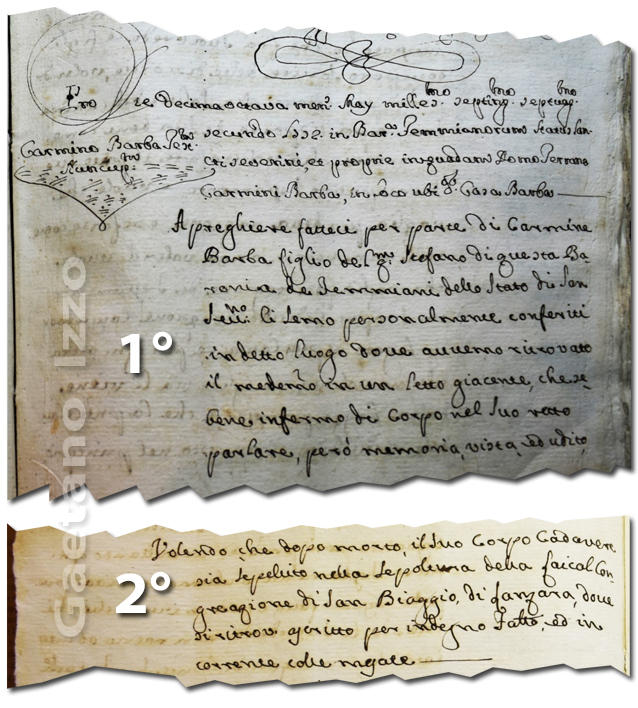 Pro
Carmino Barba Test.
Nuncup.
Die Decimaoctava mens. May milles.mo septing.mo septuag.mo
secundo 1772. in Bar. Pemmianorum Status San-
cti Severini, et proprie in quadam Domo Terrana
Carmini Barba, in loco ubi d. Casa Barba
A preghiere fatteci per parte di Carmine
Barba figlio del qm. Stefano di questa Ba-
ronia de Pemmiani dello Stato di San
Seu.no li semo personalmente conferiti
in detto luogo dove avvemo ritrovato
il medemo in un letto giacente, che se-
bene infermo di Corpo nel suo retto
parlare, però memoria, vista, ed udito,
1°
Volendo che dopo morto, il suo Corpo Cadavere
sia sepeluto nella sepoltura della Con-
gregazione di San Biaggio, di Lanzara, dove
si ritrov ascritto per indegno Fratto, ed in
corrente colle
2°
Gaetano Izzo